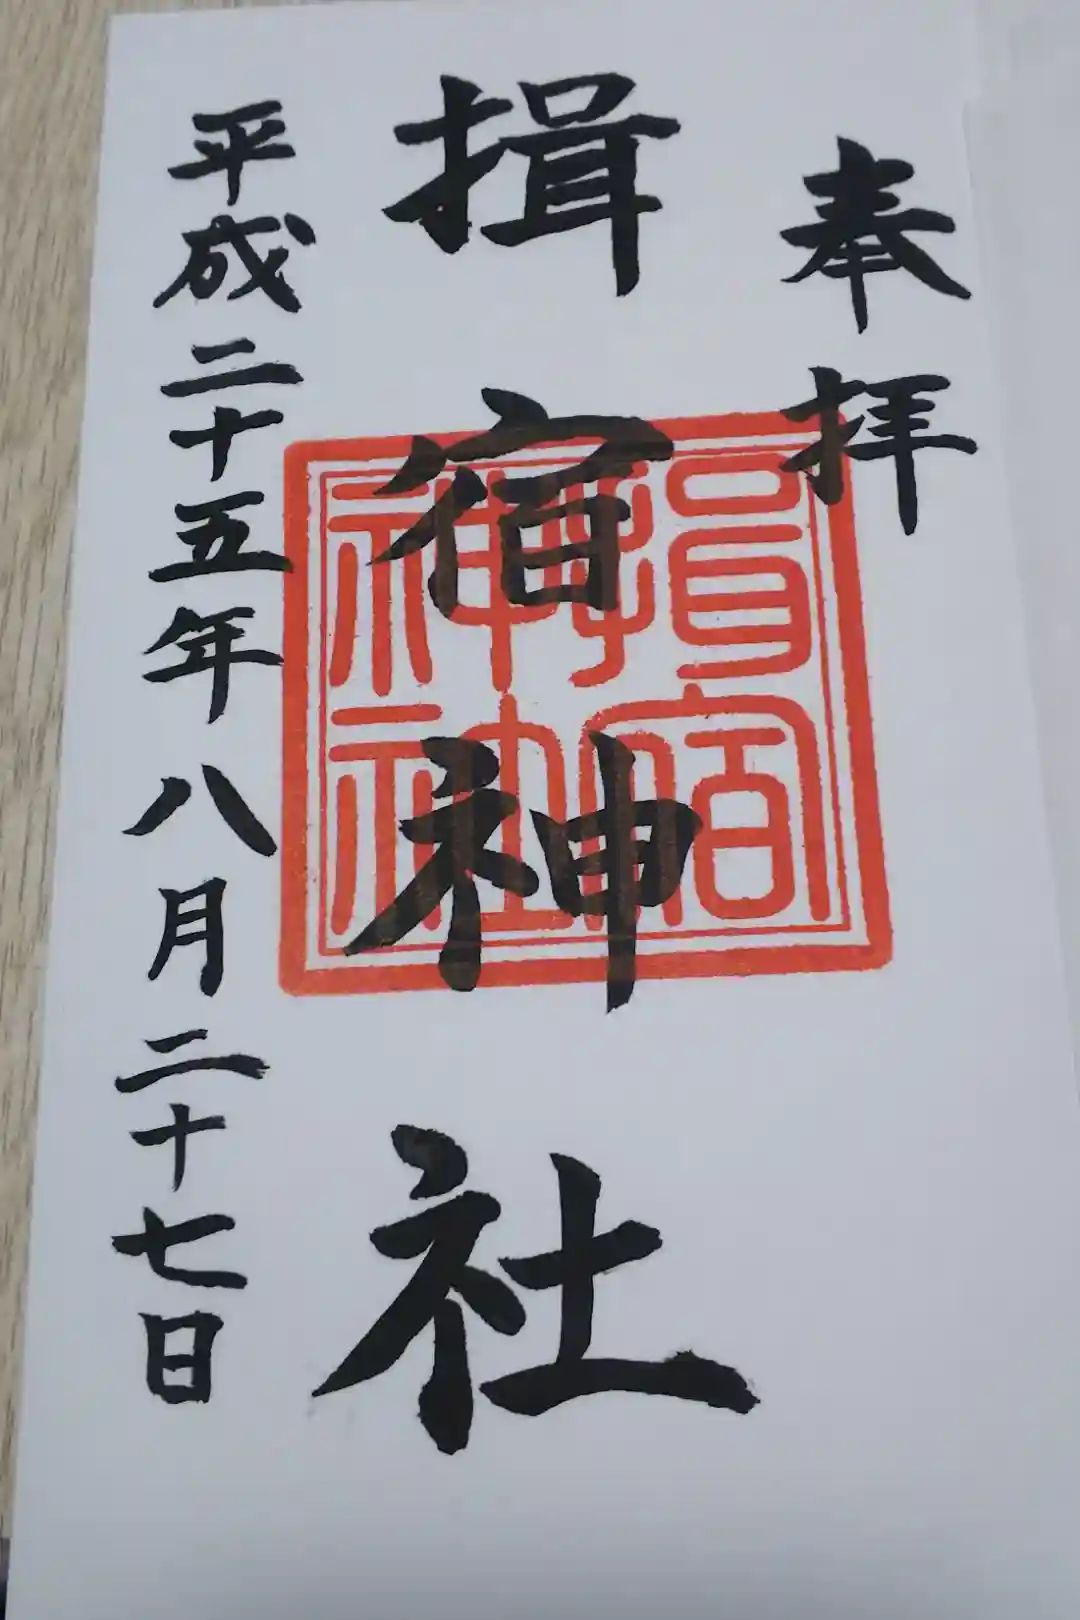 奉拝
揖宿神社
揖宿神社
平成二十五年八月二十七日